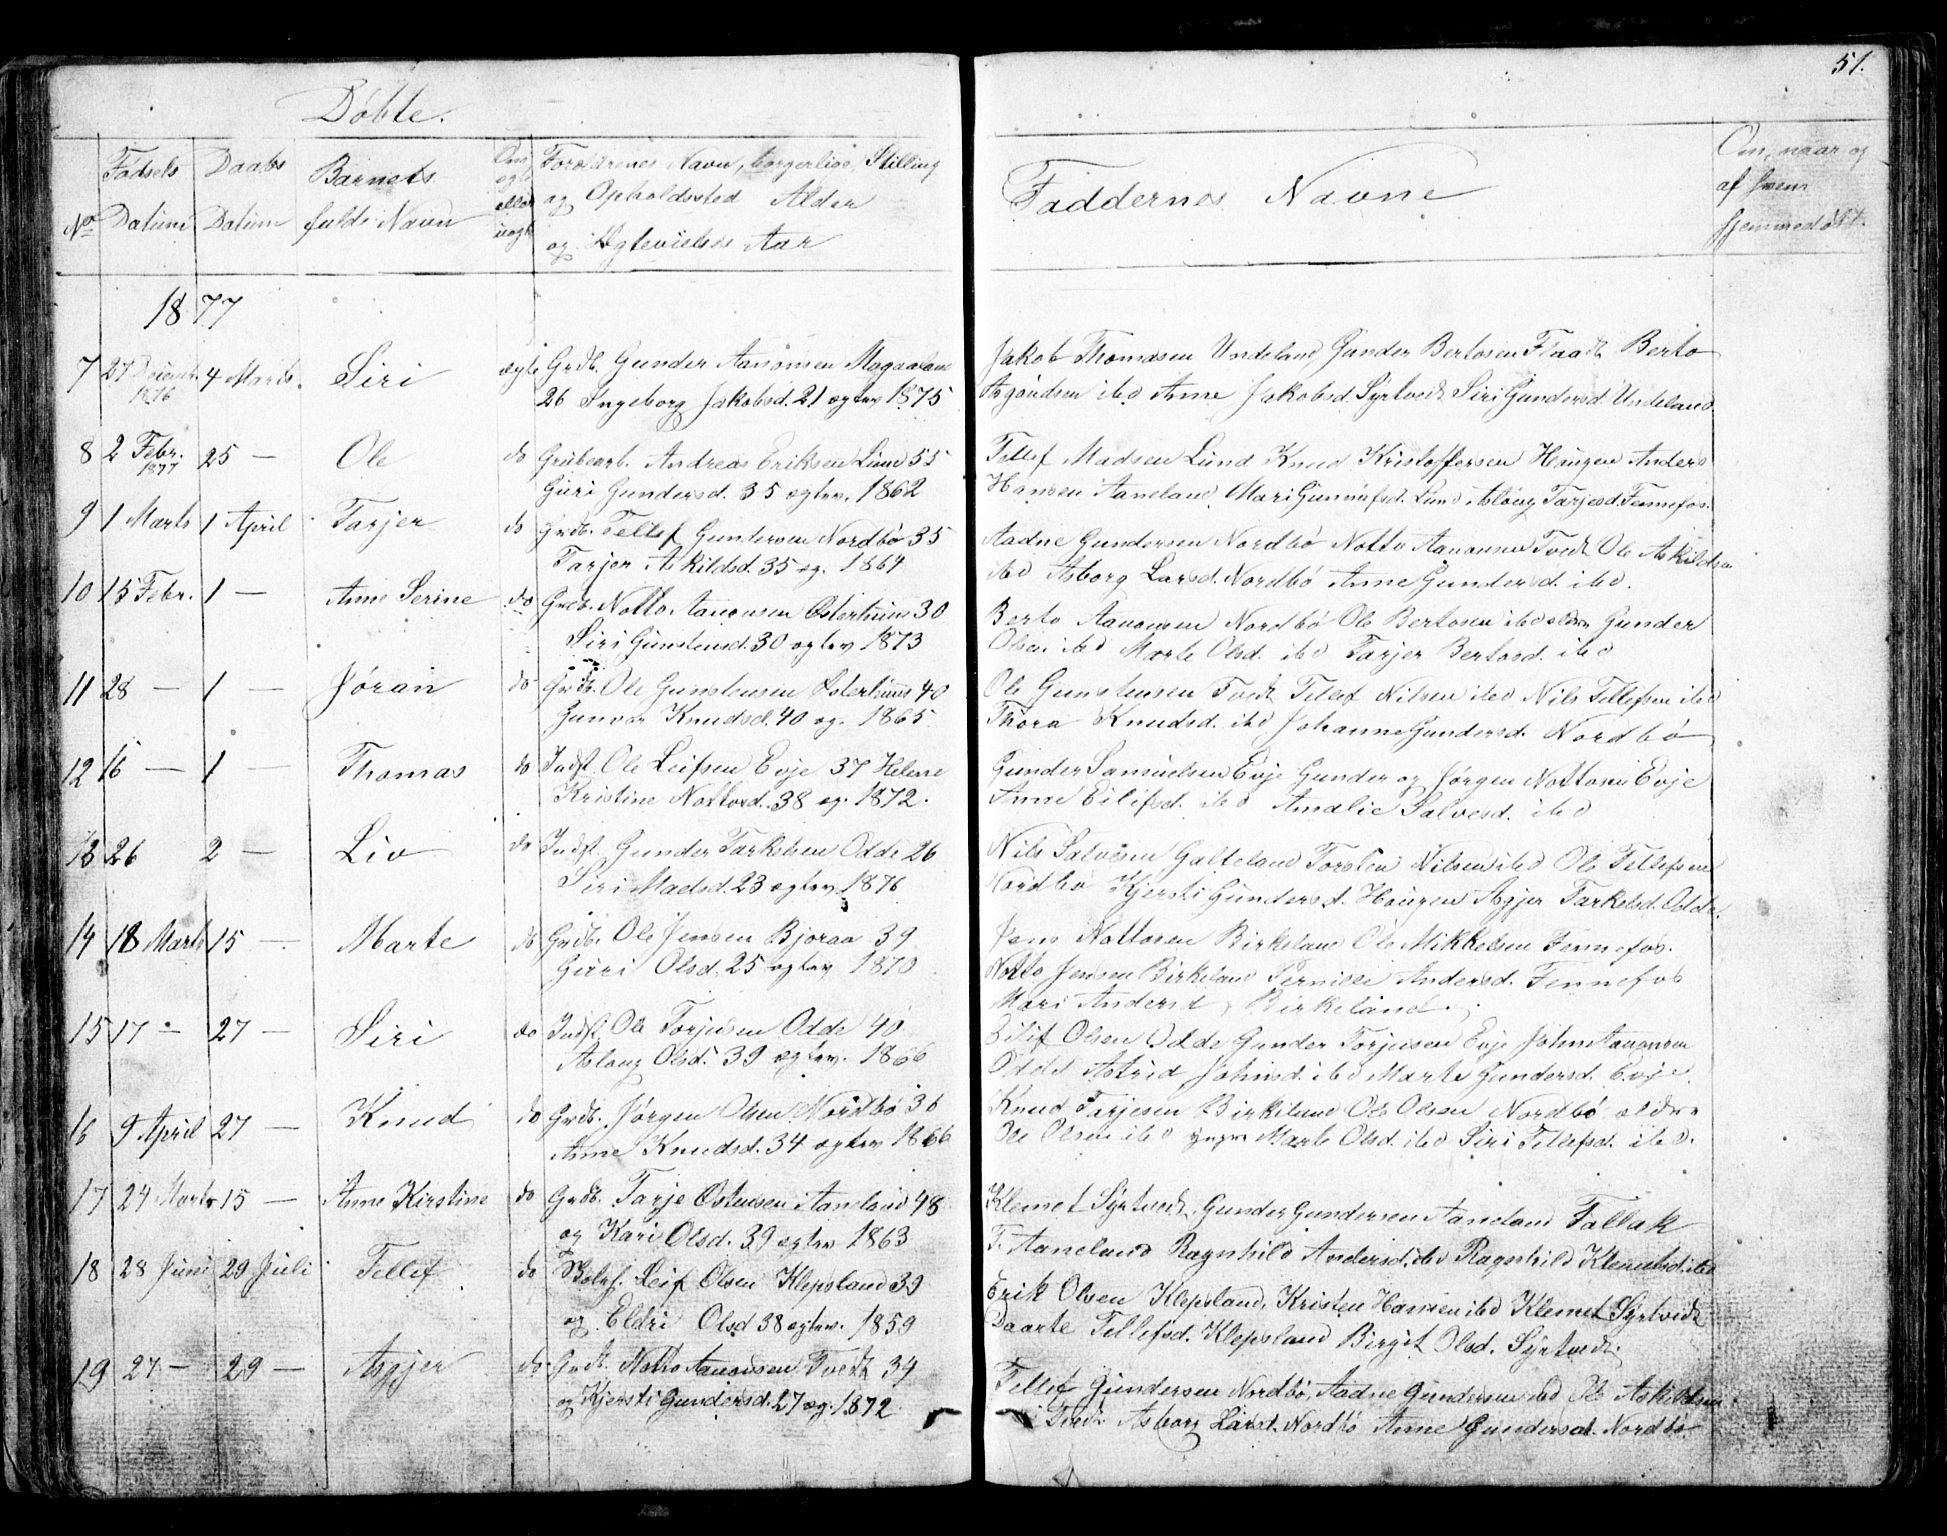 51.
Døbte.
No
Fødsels
Datum
Daabs
Datum
Barnets
fulde Navn
Om
ægte
eller
uægte
Forældrenes Navn, borgerlige Stilling
og Opholdssted Alder
og Ægtevielses Aar
Faddernes Navne
Om, naar og
af hvem
hjemmedøbt.
1877
7 27 1876 4 Marts. Siri ægte Grdb. Gunder Aanonsen 26 Ingeborg Jakobsd. 21 ægtev 1875
Jakob Thomasen Undeland Gunder Bertosen Flaadt Berto
ibd Anne Jakobsd. Syrtvedt Siri Gundersd. Undeland.
8 2 Febr. 1877 25 — Ole do Andreas Eriksen Lund 55
Guri Gundersd. 35 ægtev. 1862
Tellef Madsen Lund Knud Kristoffersen Haugen Anders
Hansen Aaneland Mari Lund Aslaug Tarjesd. Fennefos.
9 1 Marts 1 April Tarjer do Grdb. Tellef Gundersen Nordbø 35
Tarjer Askildsd. 35 æg. 1864
Aadne Gundersen Nordbø Notto Aanonsen Tvedt Ole Askildsen
ibd Asborg Larsd. Nordbø Anne Gundersd. ibd.
10 15 Febr. 1 — Anne Serine do Grdb. Notto Aanonsen 30
Siri Gunstensd. 30 ægtev 1873
Berto Aanonsen Nordbø Ole Bertosen ibd Gunder
Olsen ibd Marte Olsd. ibd Tarjer Bertosd. ibd
11 28 — 1 — Jøran do Grdb. Ole Gunstensen 40
Gunvor Knudsd. 40 æg. 1865
Ole Gunstensen Tvedt Tellef Nilsen ibd Nils Tellefsen ibd
Thora Knudsd. ibd Johanne Gundersd. Nordbø
12 16 — 1 — Thomas do Indst. Ole Leifsen Evje 37 Helene
Kristine Nottosd. 38 æg. 1872.
Gunder Samuelsen Evje Gunder og Jørgen Nottosen Evje
Anne Eilifsd. ibd Amalie Salvesd. ibd
13 26 2 — Liv do Indst. Gunder Tarkelsen Odde 26
Siri Madsd. 23 ægtev 1876
Nils Salvesen Galteland Torsten Nilsen ibd Ole Tellefsen
Nordbø Kjersti Gundersd. Haugen Asgjer Tarkelsd. Odde.
14 18 Marts 15 — Marte do Grdb. Ole Jensen Bjoraa 39
Guri Olsd. 25 ægtev 1870
Jens Nottosen Birkeland Ole Mikkelsen Fennefos.
Notto Jensen Birkeland Pernille Andersd. Fennefos
Mari Andersd. Birkeland.
15 17 — 27 — Siri do Indst. Ole Torjusen Odde 40
Aslaug Olsd. 39 ægtev. 1866
Eilif Olsen Odde Gunder Torjusen Evje John Aanonsen
Odde Astrid Johnsd. ibd Marte Gundersd. Evje.
16 9 April 27 — Knud do Grdb. Jørgen Olsen Nordbø 36
Anne Knudsd. 34 ægtev 1866
Knud Tarjesen Birkeland Ole Olsen Nordbø ældre
Ole Olsen ibd yngre Marte Olsd. ibd Siri Tellefsd. ibd.
17 24 Marts 15 — Anne Kirstine do Grdb. Tarje Ostensen Aaneland 48
og Kari Olsd. 39 ægtev 1863
Klemet Syrtvedt, Gunder Gundersen Aaneland Tallak
T. Aaneland Ragnhild Andersd. ibd Ragnhild Klemetsd. ibd
18 28 Juni 29 Juli Tellef do Leif Olsen Klepsland 39
og Eldri Olsd 38 ægtev. 1859
Erik Olsen Klepsland, Kristen Hansen ibd Klemet Syrtvedt
Daarte Tellefsd. Klepsland Birgit Olsd. Syrtvedt.
19 27 — 29 — Asgjer do Grdb. Notto Aanonsen Tvedt 34
og Kjersti Gundersd. 27 æg. 1872
Tellef Gundersen Nordbø, Aadne Gundersen ibd Ole Askildsen
Tvedt Asborg Larsd. Nordbø Anne Gundersd. Nordbø.